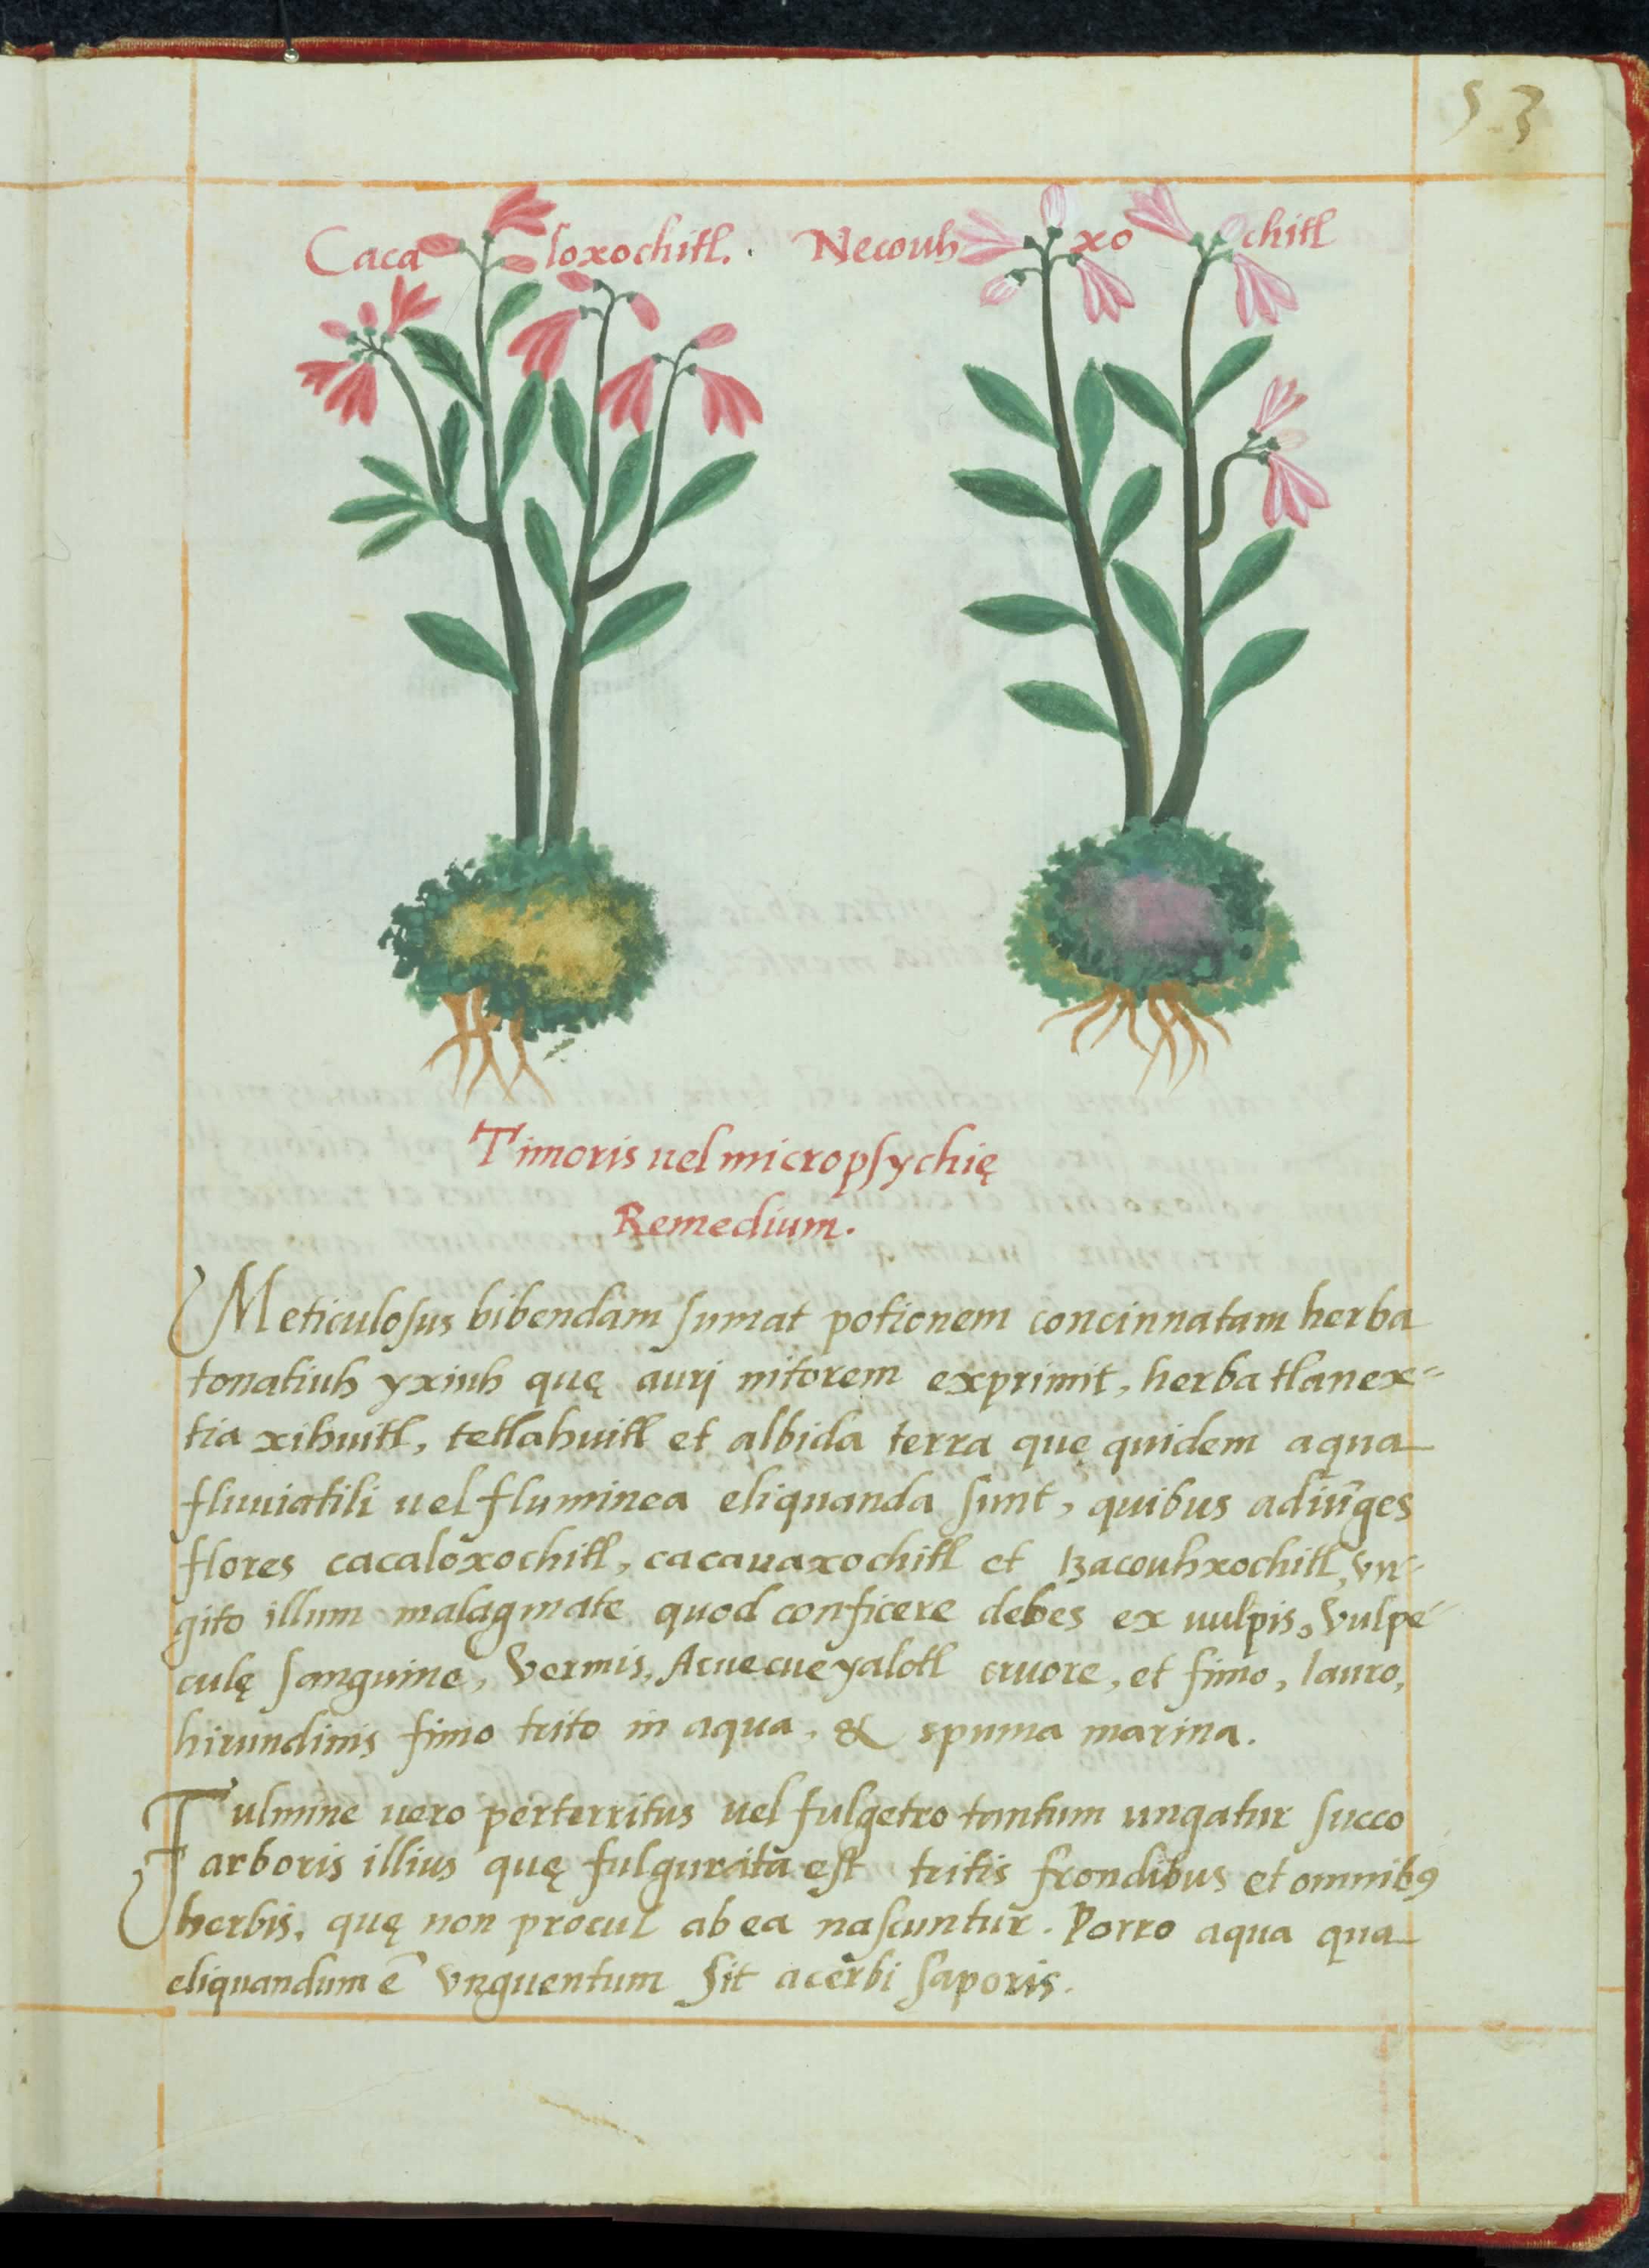 53
Cacaloxochitl. Necouhxochitl
Timoris uel micropſychię
Remedium.
Meticuloſus bibendam ſumat potionem concinnatam herba
tonatiuh yxiuh quę aurj nitorem exprimit, herba tlanex=
tia xihuitl, tetlahuitl et albida terra quę quidem aqua
fluuiatili uel fluminea eliquanda ſunt, quibus adiūges
flores cacaloxochitl, cacauaxochitl et tzacouhxochitl, vn-
gito illum malagmate quod conficere debes ex uulpis, Vulpe-
culę ſanguine, Vermis, Acuecueyalotl cruore, et fimo, lauro,
hirundinis fimo trito in aqua, & spuma marina.
Fulmine uero perterritus uel fulgetro tantum ungatur ſucco
arboris illius quę fulgurita eſt tritis frondibus et omnibꝰ
herbis, quę non procul ab ea naſcuntur. Porro aqua qua
eliquandum ē vnguentum ſit acerbi ſaporis.